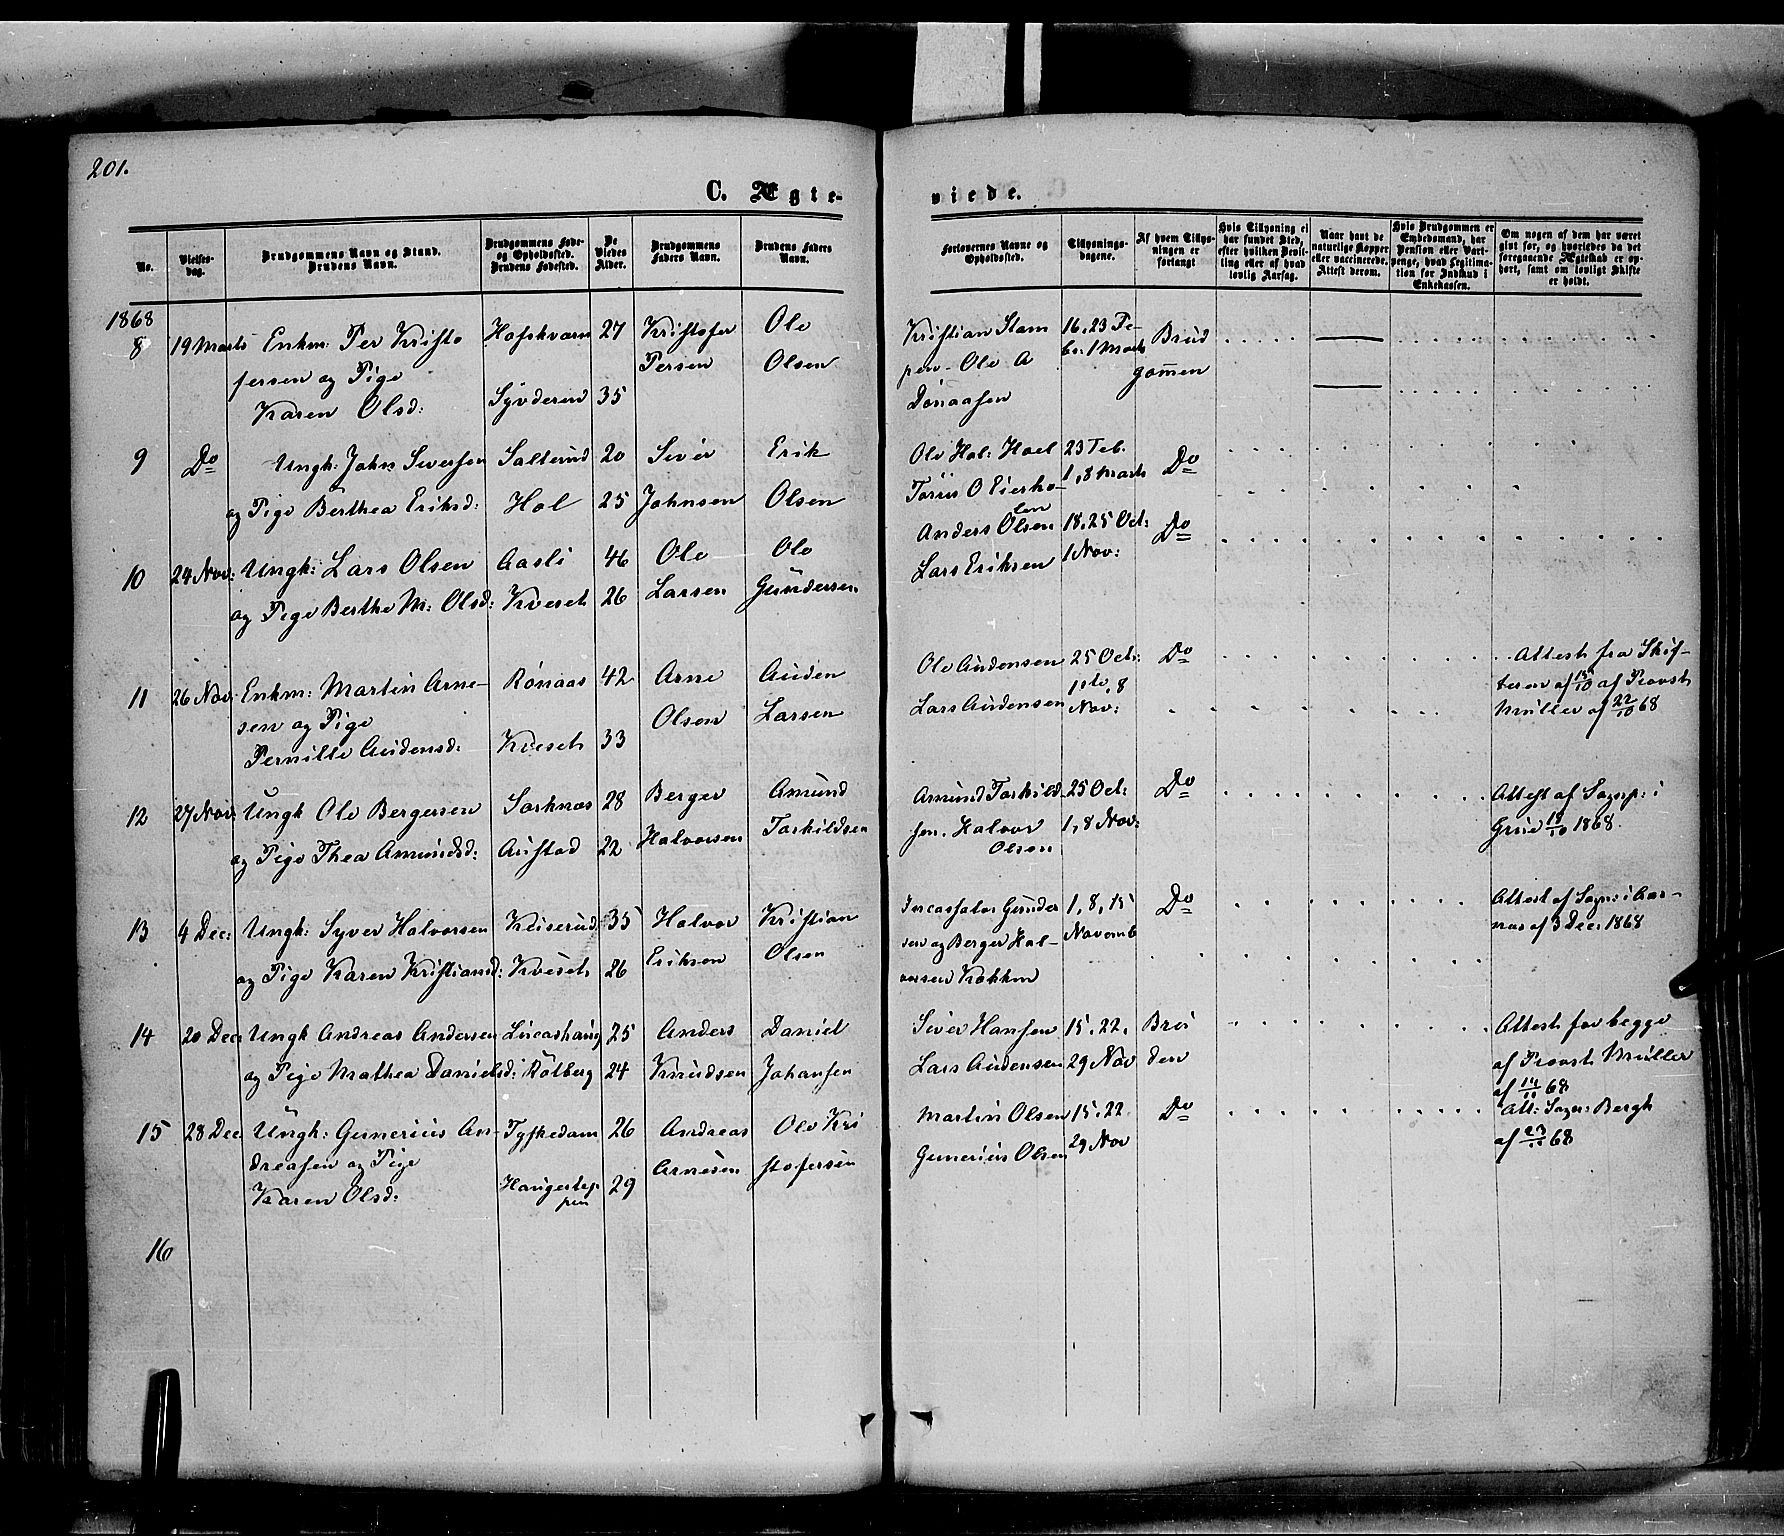 201.
C. Ægte-
viede.
No.
Vielses-
dag.
Brudgommens Navn og Stand.
Brudens Navn.
Brudgommens Føde-
og Opholdssted.
Brudens Fødested.
De
Viedes
Alder.
Brudgommens
Faders Navn.
Brudens Faders
Navn.
Forlovernes Navne og
Opholdssted.
Tillysnings-
dagene.
Af hvem Tillys-
ningen er
forlangt
Hvis Tillysning ei
har fundet Sted,
efter hvilken Bevil-
ling eller af hvad
lovlig Aarsag.
Naar havt de
naturlige Kopper
eller vaccinerede.
Attest derom.
Hvis Brudgommen er
Embedsmand, har
Pension eller Vart-
penge, hvad Legitima-
tion for Indskud i
Enkekassen.
Om nogen af dem har været
gift før, og hvorledes da det
foregaaende Ægteskab er op-
hørt, samt om lovligt Skifte
er holdt.
1868
8 19 Marts Enkm: Per Kristo Hofskvarn 27 Kristofer Ole
fersen og Pige Persen Olsen
Karen Olsd: Syvderud 35
Kristian Stam 16, 23 Fe- Brud
pen - Ole A br: 1 Marts gommen
Donaasen
9 Do Ungk: John Siversen Salterud 20 Siver Erik
og Pige Berthea Eriksd: Hol 25 Johnsen Olsen
Ole Hal: Hoel 23 Feb. Do
O Eierho- 1, 8 Marts
len
10 24 Nov: Ungk: Lars Olsen Aasli 46 Ole Ole
og Pige Berthe M: Olsd: Kveset 26 Larsen Gundersen
Anders Olsen 18, 25 Oct: Do
Lars Eriksen 1 Nov:
11 26 Nov Enkm: Martin Arne- Rønaas 42 Arne Auden
sen og Pige Olsen Larsen
Pernille Audensd: Kveset 33
Ole Audensen 25 Oct: Do Attest fra Skif-
1ste, 8 teren af 15/10 af Provst
Lars Audensen Nov: Müller af 22/10 68
12 27 Nov: Ungk Ole Bergersen Sorknæs 28 Berger Amund
og Pige Thea Amundsd: Austad 22 Halvorsen Torkildsen
Amund Torkild- 25 Oct: Do Attest af Sognp: i
sen, Halvor 1, 8 Nov: Grue 19/10 1868.
Olsen
13 4 Dec: Ungk: Syver Halvorsen Keiserud 35 Halvor Kristian
og Pige Karen Kristiansd: Kveset 26 Eriksen Olsen
Gunder 1, 8, 15 Do Attest af Sogn: i Aas-
sen og Berger Hal- Novemb næs af 3 Dec: 1868
vorsen Kokken
14 20 Dec Ungk Andreas Andersen Lucashaug 25 Anders Daniel
og Pige Mathea Danielsd: Rotberg 24 Knudsen Johansen
Siver Hansen 15, 22, Bru Attest for begge
Lars Audensen 29 Nov den af Provst Müller
af 14/11 68
15 28 Dec Ungk: Gunerius An- Tyskedam 26 Andreas Ole Kri
dreasen og Pige Arnesen stofersen
Karen Olsd: Haugertep 29
pen
Martin Olsen 15, 22 Do Att: Sogn: Bergh
Gunerius Olsen 29 Nov af 23/11 68
16